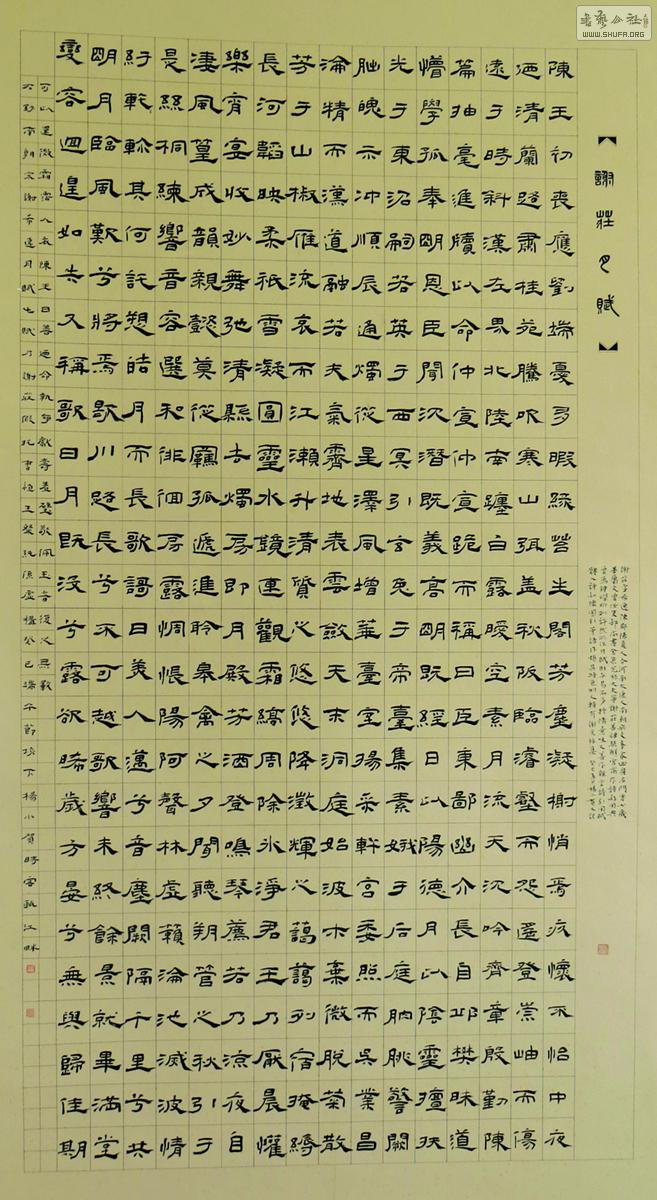 謝莊月賦
陳王初喪應劉端憂多暇綠苔生閣芳塵凝榭悄焉疚懷不怡中夜
迺清蘭路肅桂苑騰吹寒山弭蓋秋阪臨濬壑而怨遙登崇岫而傷
遠于時斜漢左界北陸南躔白露曖空素月流天沉吟齊章殷勤陳
篇抽毫進牘以命仲宣仲宣跪而稱曰臣東鄙幽介長自邱樊昧道
懵學孤奉明恩臣聞沉潛既義高明既經日以陽德月以陰靈擅扶
光于東沼嗣若英于西冥引玄兔于帝臺集素娥于后庭朒朓警闕
朏魄示冲順辰通燭從星澤風增華臺室揚采軒宮委照而吳業昌
淪精而漢道融若夫氣霽地表雲斂天末洞庭始波木葉微脫菊散
芳于山椒雁流哀而江瀨升清質之悠悠降澂輝之藹藹列宿掩縟
長河韜映柔祇雪凝圓靈水鏡連觀霜縞周除冰淨君王乃厭晨懽
樂宵宴收妙舞弛清縣去燭房即月殿芳酒登鳴琴薦若乃涼夜自
淒風篁成韻親懿莫從羈孤遞進聆皋禽之夕聞聽朔管之秋引于
是絲桐練響音容選和徘徊房露惆悵陽阿聲林虛籟淪池滅波情
紆軫其何託愬皓月而長歌謌曰美人邁兮音塵闕隔千里兮共
明月臨風歎兮將焉歇川路長兮不可越歌響未終餘景就畢滿堂
變容迴遑如失又稱歌曰月既沒兮露欲晞歲方晏兮無與歸佳期
可以還微霜霑人衣陳王曰善迺命執事獻壽羞璧敬佩玉音復之無斁
南朝宋謝希逸月賦也賦乃謝莊假託
書法公社
WWW.SHUFA.ORG